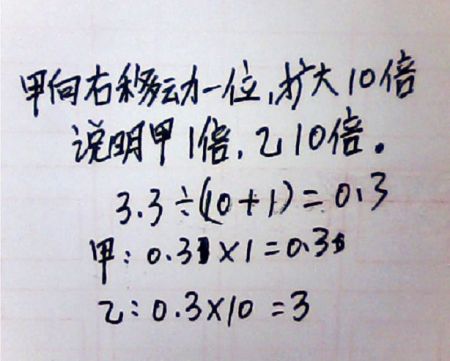 甲向右移动一位,扩大10倍
说明甲1倍,乙10倍。
3.3÷(10+1)=0.3
甲:0.3×1=0.3
乙:0.3×10=3